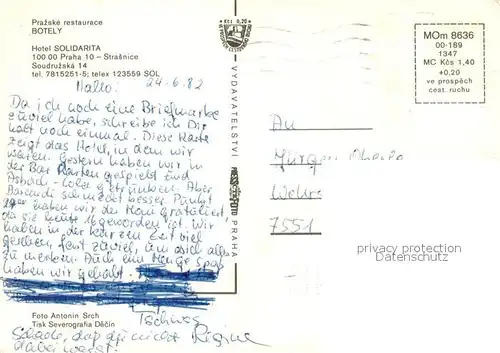 Pražské restaurace
BOTELY
Hotel SOLIDARITA
100 00 Praha 10 – Strašnice
Soudružská 14
tel. 7815251-5; telex 123559 SOL
Hallo! 24.6.82
Da ich noch eine Briefmarke
zuviel habe, schreibe ich Dir
halt noch einmal. Diese Karte
zeigt das Hotel, in dem wir
waren. Gestern haben wir in
der Bar Karten gespielt und
Asbach-Cola getrunken. Aber
Bacardi schmeckt besser. Punkt
haben wir der Moni gratuliert
da sie heute geworden ist. Wir
haben in der kurzen Zeit viel
gesehen, fast zuviel, um sich alles
zu merken. Auch eine Menge Spaß
haben wir gehabt.
Tschüss
Regine
Foto Antonín Srch
Tisk Severografia Děčín
Schade, daß du nicht
dabei warst!
Kčs 0,20
VYDAVATELSTVÍ
PRESSFOTO
PRAHA
MOm 8636
00-189
1347
MC Kčs 1,40
+0,20
ve prospěch
cest. ruchu
An
Jürgen
Wehr
7551
privacy protection
Datenschutz